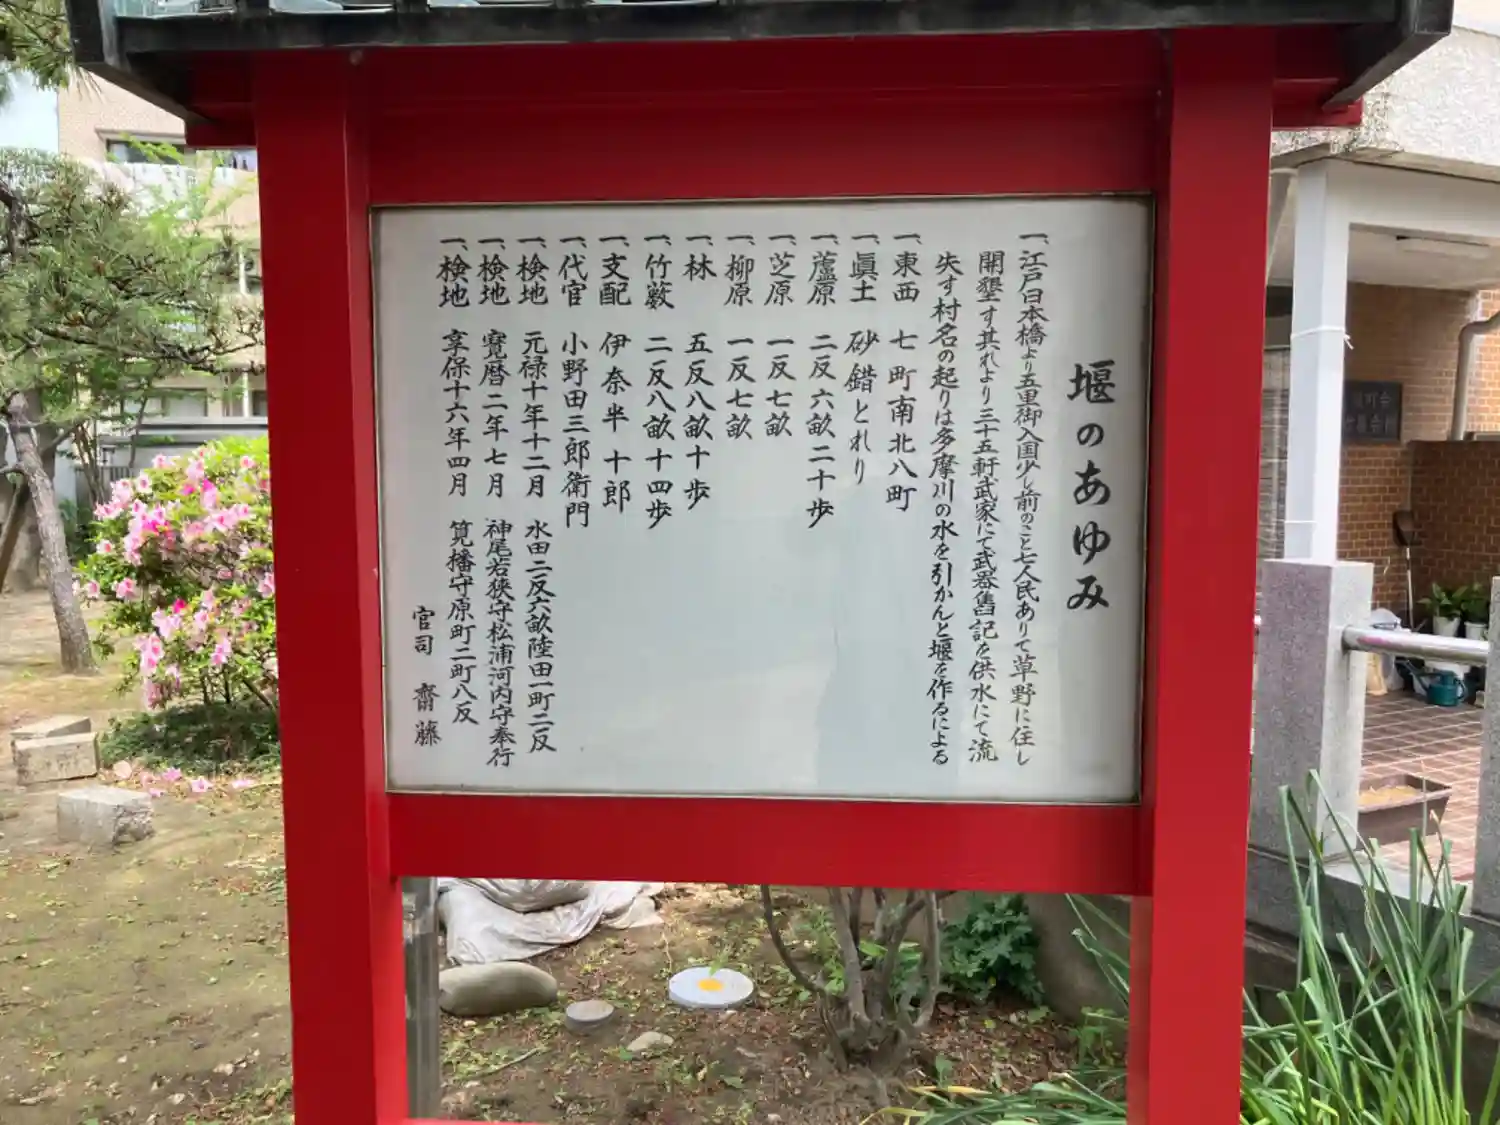 堰のあゆみ
一、江戸日本橋より五里御入国少し前のこと七人民ありて草野に住し
開墾す其れより三十五軒武家にて武器舊記を供水にて流
失す村名の起りは多摩川の水を引かんと堰を作るによる
一、東西 七町南北八町
一、眞土 砂錯とれり
一、蘆原 二反六畝二十歩
一、芝原 一反七畝
一、柳原 一反七畝
一、林 五反八畝十歩
一、竹藪 二反八畝十四歩
一、支配 伊奈半十郎
一、代官 小野田三郎衛門
一、検地 元禄十年十二月 水田二反六畝陸田一町二反
一、検地 寛暦二年七月 神尾若狭守松浦河内守奉行
一、検地 享保十六年四月 筧播守原町二町八反
官司 齋藤